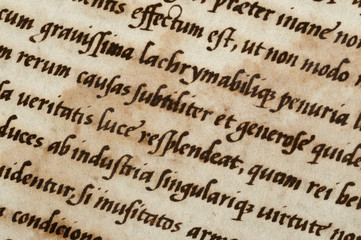 entis effectum est, præter inane no
cum grauissima lachrymabiliq; penuria l
m rerum causas subtiliter et generose quid
la ueritatis luce resplendeat, quam rei bel
duces ab industria singulariq; uirtute no
identur, si inusitatos arm
condicione